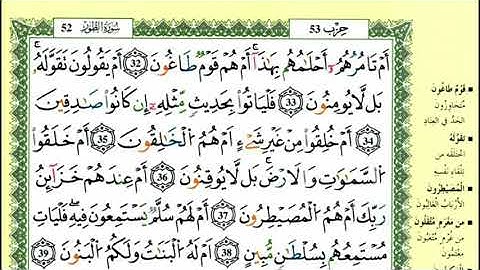 52 سُورَةُ الطُّورِ
حِزْب 53
أَمْ تَامُرُهُمُۥٓ أَحْلَٰمُهُم بِهَٰذَآ أَمْ هُمْ قَوْمٌ طَاغُونَ 32 أَمْ يَقُولُونَ تَقَوَّلَهُۥ
بَل لَّا يُومِنُونَ 33 فَلْيَاتُوا۟ بِحَدِيثٍ مِّثْلِهِۦٓ إِن كَانُوا۟ صَٰدِقِينَ
34 أَمْ خُلِقُوا۟ مِنْ غَيْرِ شَےْءٍ اَمْ هُمُ اُلْخَٰلِقُونَ 35 أَمْ خَلَقُوا۟
اُلسَّمَٰوَٰتِ وَالَارْضَ بَل لَّا يُوقِنُونَ 36 أَمْ عِندَهُمْ خَزَآئِنُ
رَبِّكَ أَمْ هُمُ اُلْمُصَۣيْطِرُونَ 37 أَمْ لَهُمْ سُلَّمٌ يَسْتَمِعُونَ فِيهِ فَلْيَاتِ
مُسْتَمِعُهُم بِسُلْطَٰنٍ مُّبِينٍ 38 أَمْ لَهُ اُلْبَنَٰتُ وَلَكُمُ اُلْبَنُونَ 39
قَوْمٌ طَاغُونَ
مُتَجَاوِزُونَ
الحَدَّ في العِنَادِ
تَقَوَّلَهُ
اخْتَلَقَهُ مِن
تِلْقَاءِ نَفْسِهِ
الْمُصَيْطِرُونَ
الأَرْبَابُ الغَالِبُونَ
مِن مَغْرَمٍ مُثْقَلُونَ